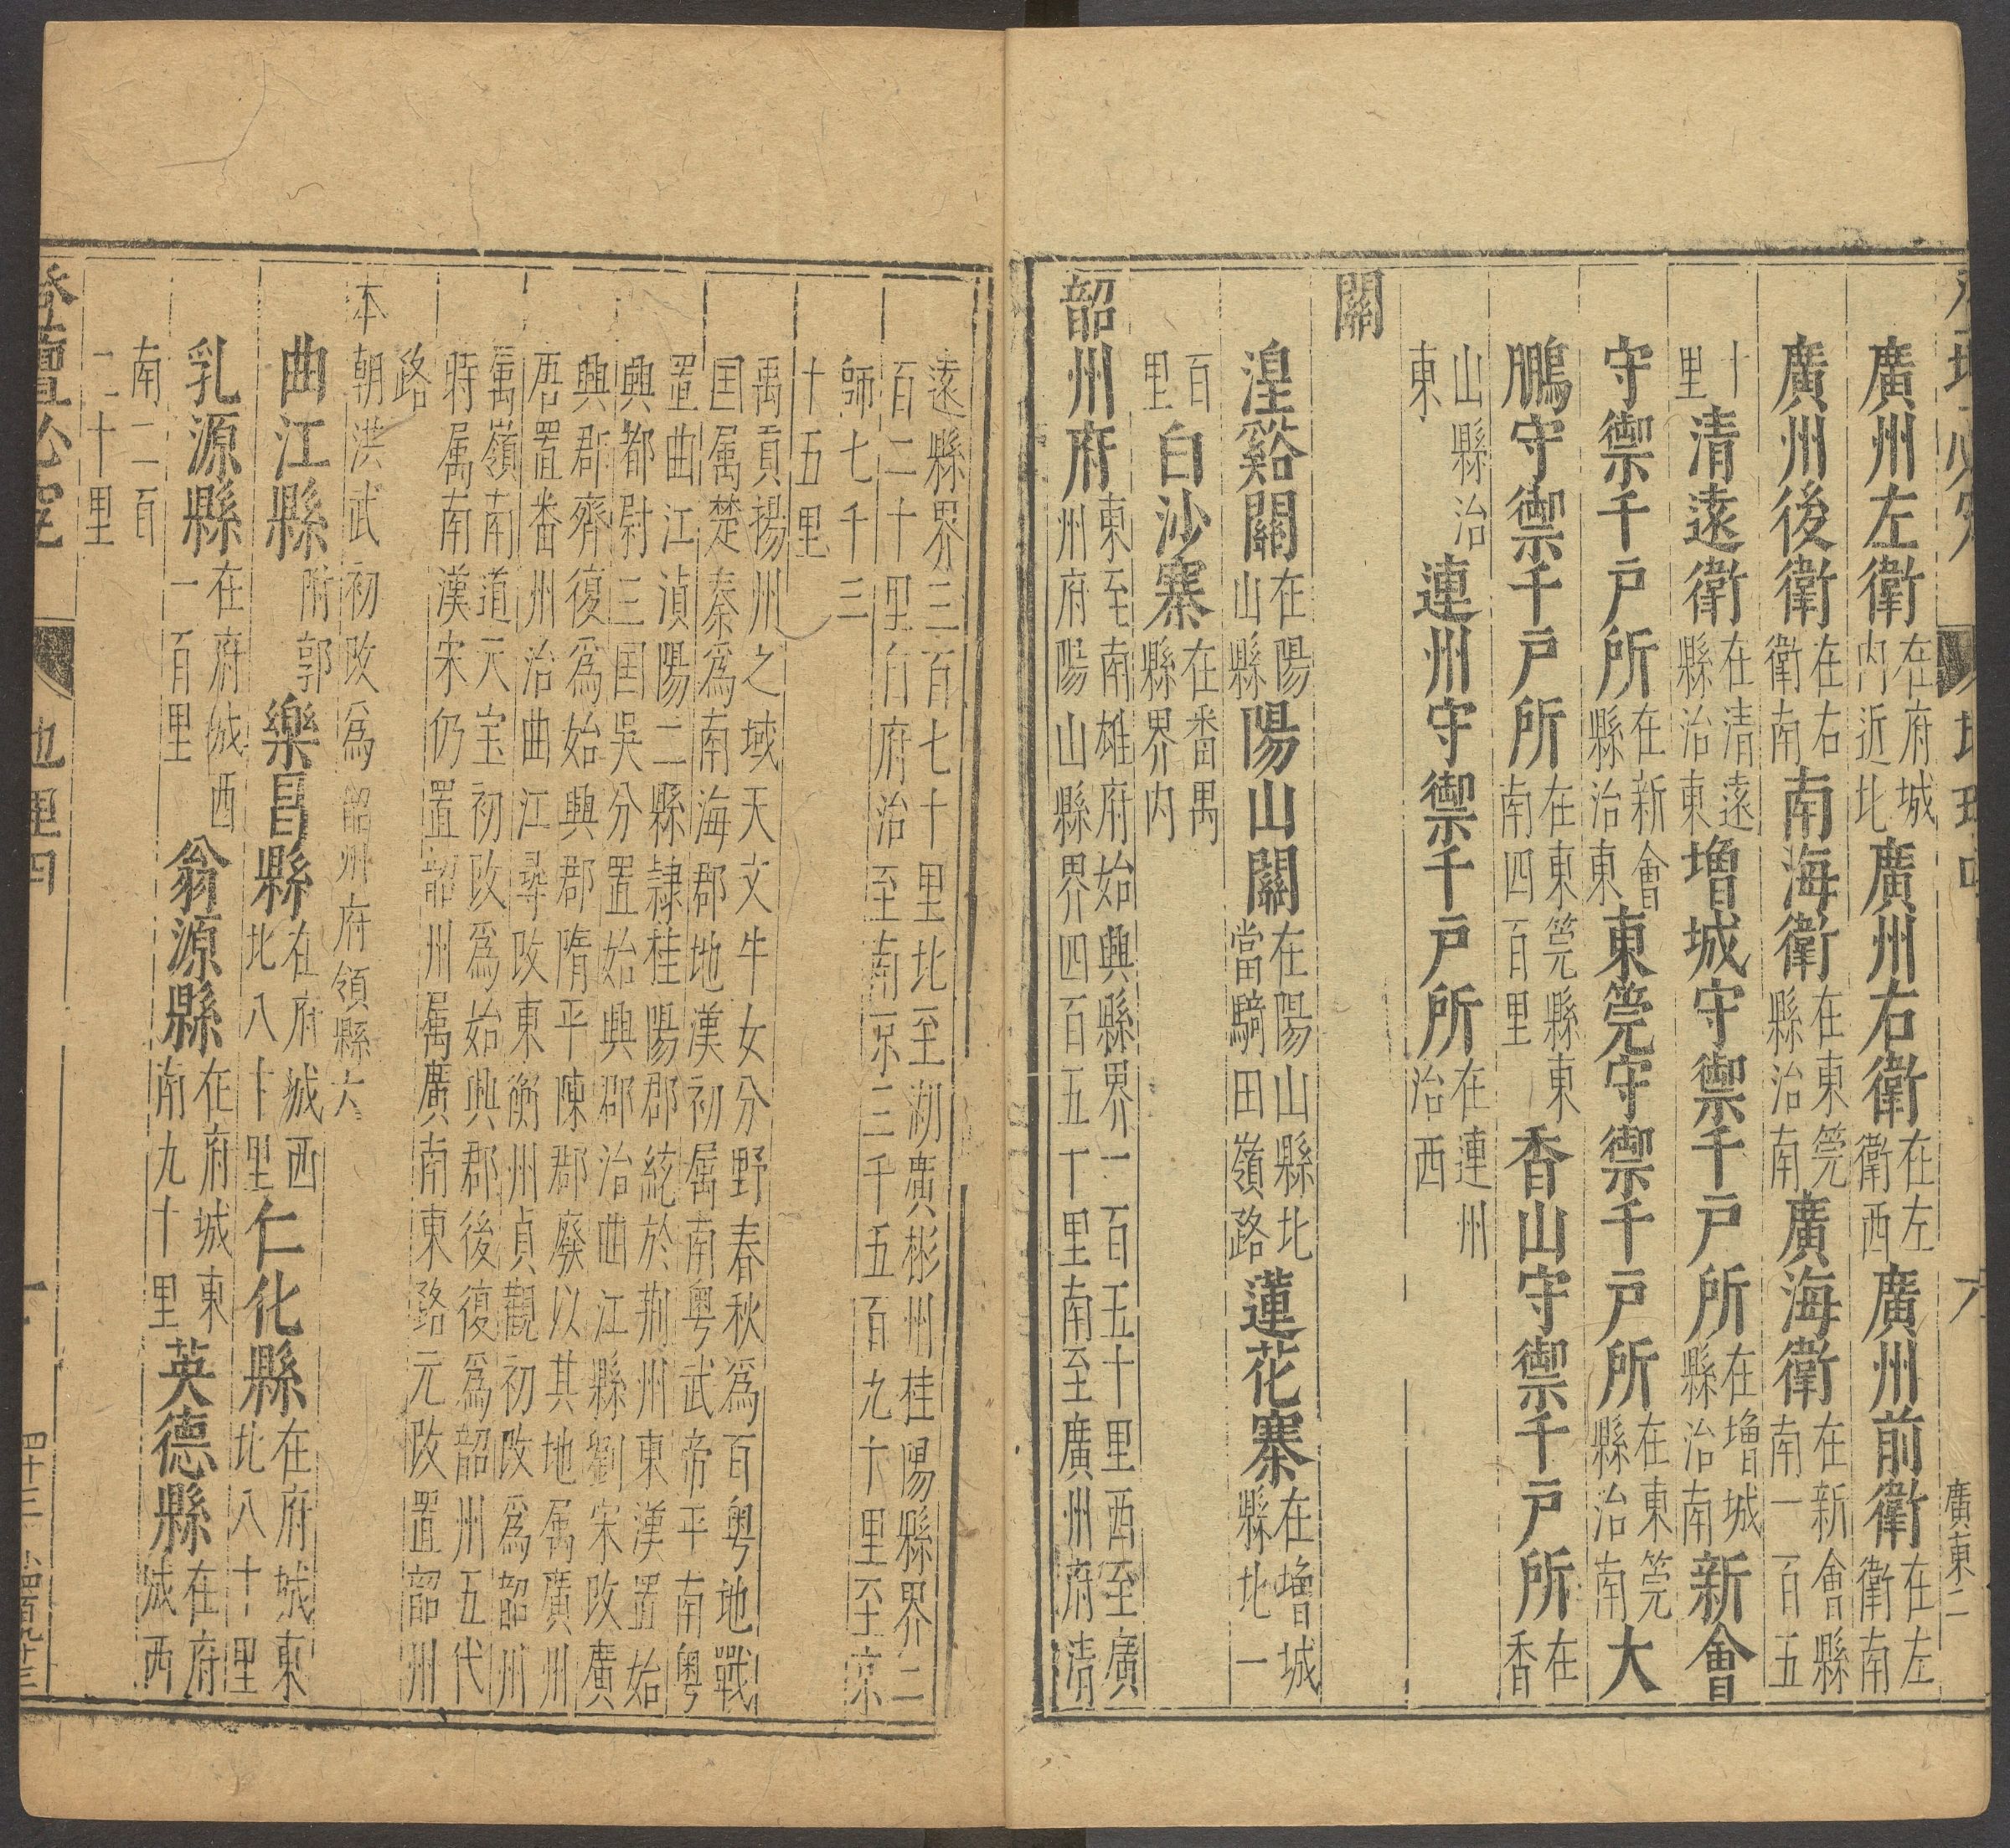 六 廣東二
廣州左衛在府城内近北廣州右衛在左衛西廣州前衛在左衛南
廣州後衛在右衛南南海衛在東筦縣治南廣海衛在新會縣南一百五
十里清遠衛在清遠縣治東增城守禦千戶所在增城縣治南新會
守禦千戶所在新會縣治東東筦守禦千戶所在東筦縣治南大
鵬守禦千戶所在東筦縣東南四百里香山守禦千戶所在香
山縣治東連州守禦千戶所在連州治西
關
湟谿關在陽山縣陽山關在陽山縣北當騎田嶺路蓮花寨在增城縣北一
百里白沙寨在番禺縣界内
韶州府東至南雄府始興縣界一百五十里西至廣州府陽山縣界四百五十里南至廣州府清
遠縣界三百七十里北至湖廣彬州桂陽縣界二
百二十里自府治至南京三千五百九十里至京
師七千三
十五里
禹貢揚州之域天文牛女分野春秋爲百粤地戰
国属楚秦爲南海郡地漢初属南粤武帝平南粤
置曲江湞陽二縣隷桂陽郡統於荆州東漢置始
興都尉三国吳分置始興郡治曲江縣劉宋改廣
興郡齊復爲始興郡隋平陳郡廢以其地属廣州
唐置番州治曲江尋改東衡州貞觀初改爲韶州
属嶺南道元宝初改爲始興郡後復爲韶州五代
時属南漢宋仍置韶州属廣南東路元改置韶州
路
本朝洪武初改爲韶州府領縣六
曲江縣附郭樂昌縣在府城西北八十里仁化縣在府城東北八十里
乳源縣在府城西一百里翁源縣在府城東南九十里英德縣在府城西
南二百二十里
登壇必究 地理四 一 四十三